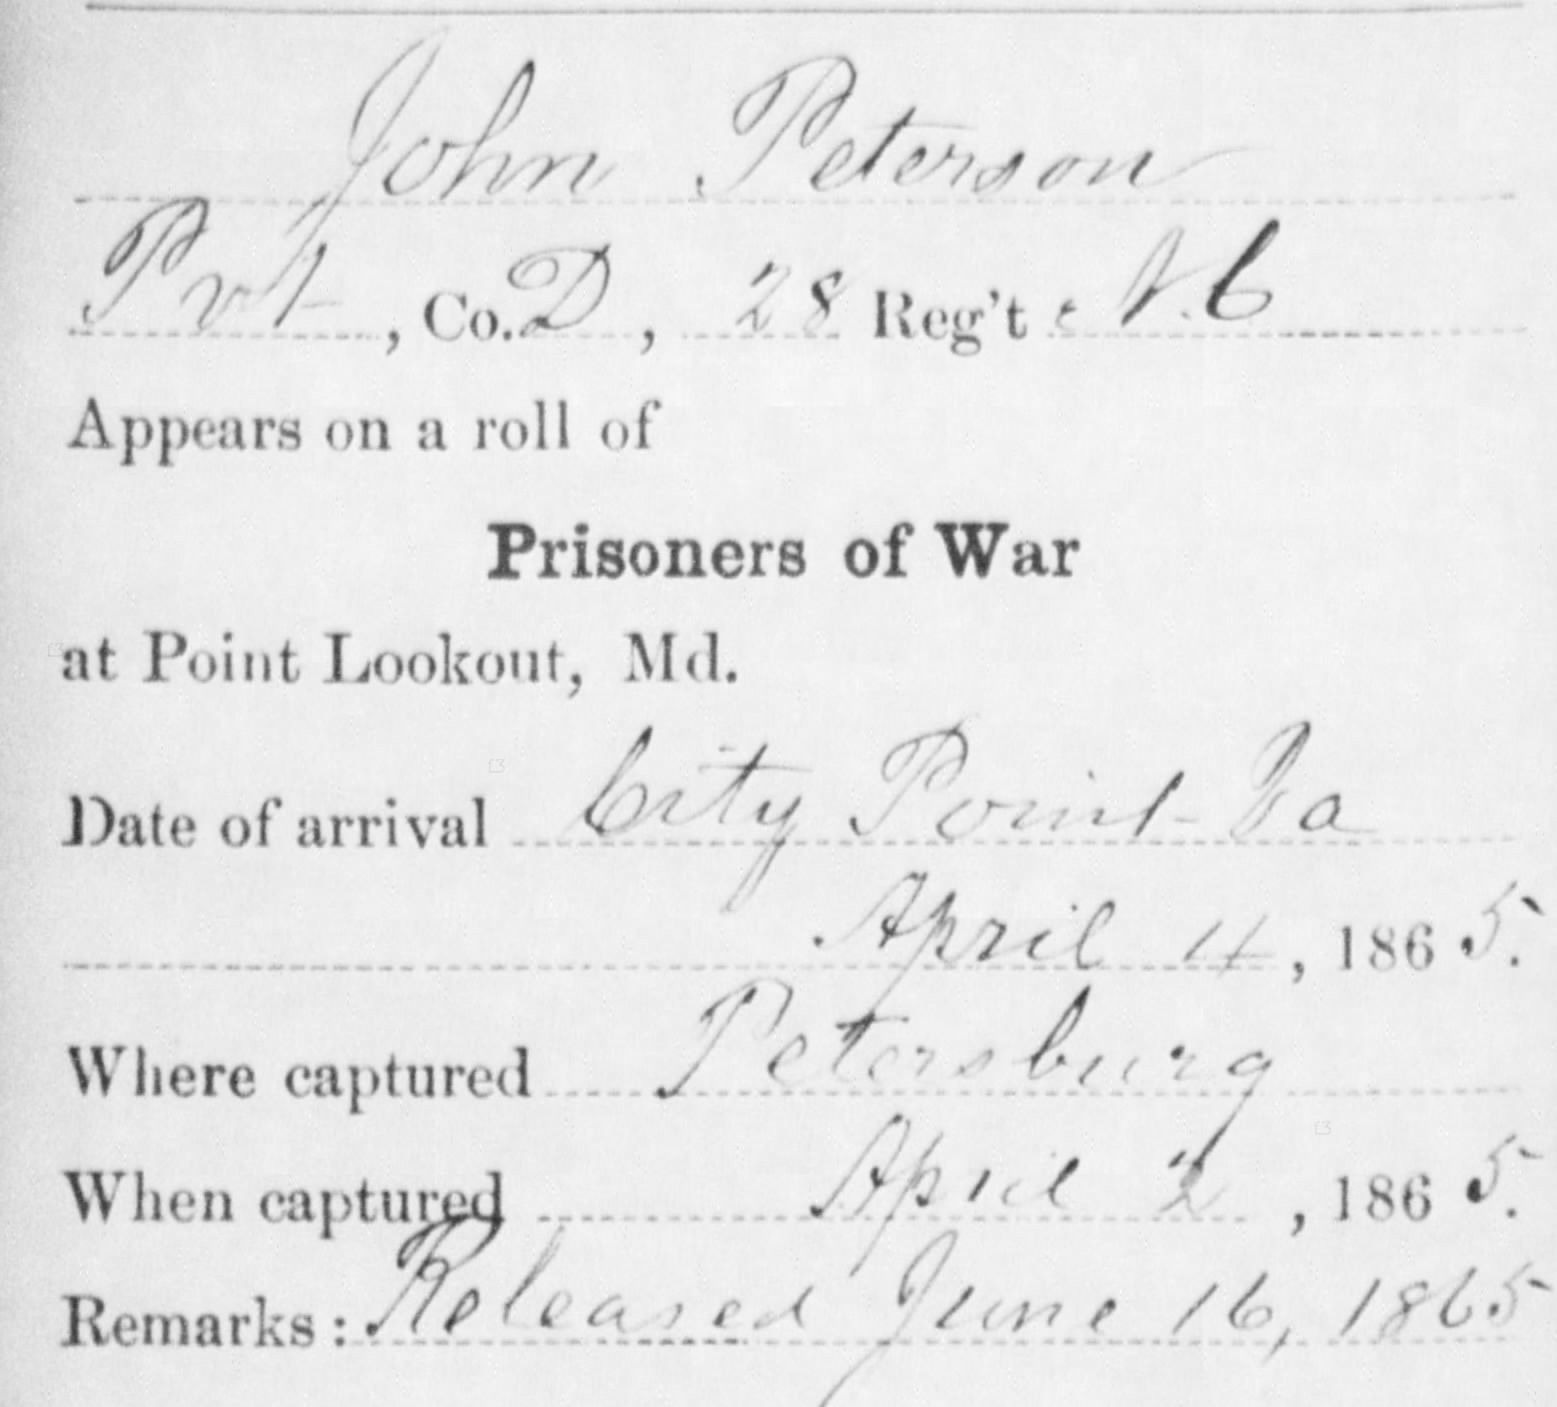 John Peterson
Pvt, Co. D, 28 Reg't N.C
Appears on a roll of
Prisoners of War
at Point Lookout, Md.
Date of arrival City Point Va
April 4, 1865.
Where captured Petersburg
When captured April 2, 1865.
Remarks: Released June 16, 1865